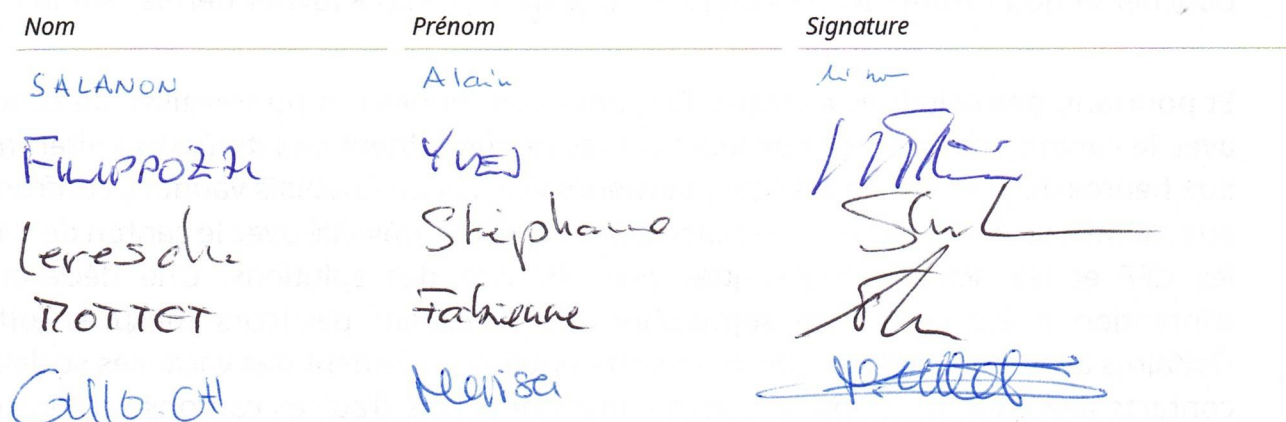 Nom Prénom Signature
SALANON Alain
FILIPPOZZI YVES
Leresche Stéphane
ROTTET Fabienne
Gallo Ott Marisa